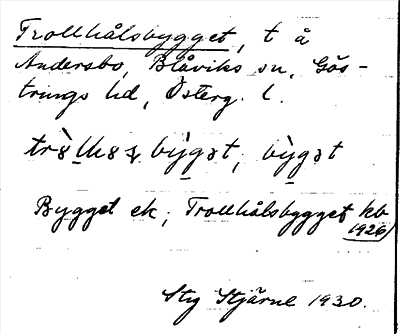 Trollhålsbygget, t å
Andersbo, Blåviks sn, Gös-
trings hd, Österg. l.
bỳgət, bỳgət
Bygget ek; Trollhålsbygget kb
1926)
Stig Stjärne 1930.